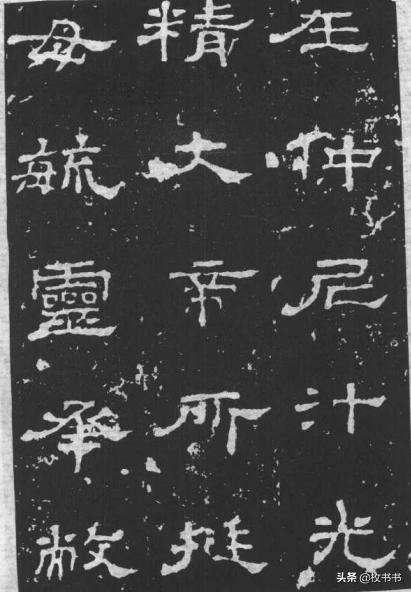 在仲尼汁光
精大帝所挺
母毓靈承敝
头条 @枚书书